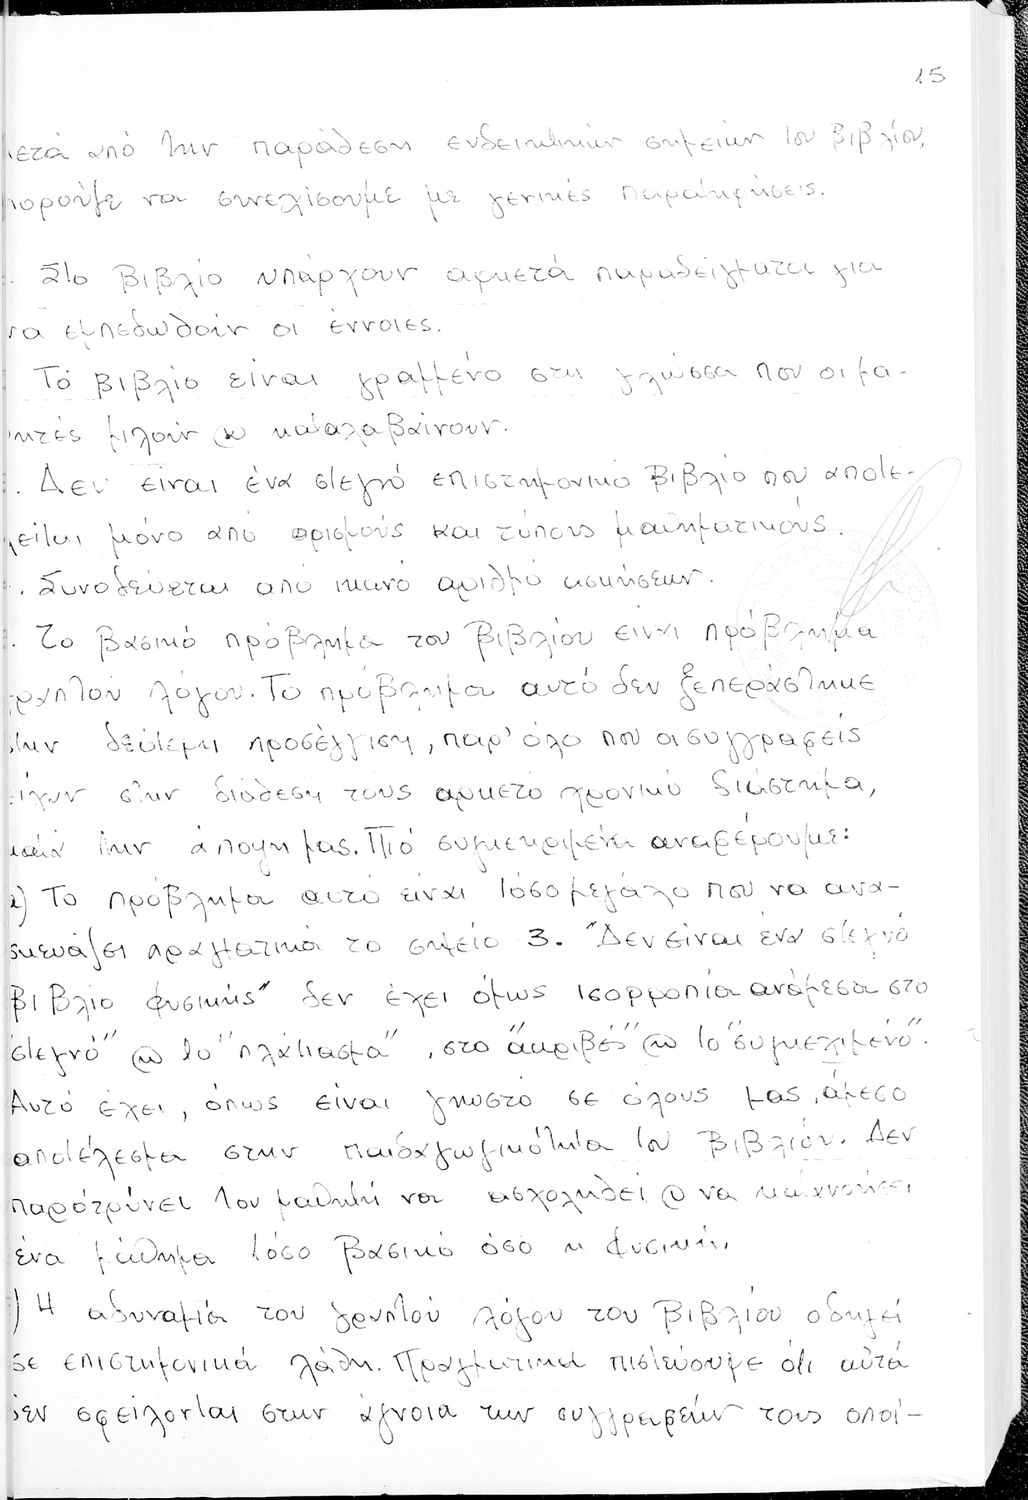 15
μετά από την παράθεση ενδεικτικών σημείων του βιβλίου,
μπορούμε να συνεχίσουμε με γενικές παρατηρήσεις.
. Στο βιβλίο υπάρχουν αρκετά παραδείγματα για
να εμπεδωθούν οι έννοιες.
Τό βιβλίο είναι γραμμένο στη γλώσσα που οι μα-
θητές μιλούν ϗ καταλαβαίνουν.
. Δεν είναι ένα στεγνό επιστημονικό βιβλίο που αποτε-
λείται μόνο από ορισμούς και τύπους μαθηματικούς.
. Συνοδεύεται από ικανό αριθμό ασκήσεων.
. Το βασικό πρόβλημα του βιβλίου είναι πρόβλημα
γραπτού λόγου. Το πρόβλημα αυτό δεν ξεπεράστηκε
στην δεύτερη προσέγγιση, παρ' όλο που οι συγγραφείς
είχαν στην διάθεση τους αρκετό χρονικό διάστημα,
κατά την άποψη μας. Πιό συγκεκριμένα αναφέρουμε:
α) Το πρόβλημα αυτό είναι τόσο μεγάλο που να ανα-
σκευάζει πραγματικά το σημείο 3. "Δεν είναι ένα στεγνό
βιβλίο φυσικής" δεν έχει όμως ισορροπία ανάμεσα στο
"στεγνό" ϗ το "πλάτιασμα", στο "ακριβές" ϗ το "συγκεχιμένο".
Αυτό έχει, όπως είναι γνωστό σε όλους μας, άμεσο
αποτέλεσμα στην παιδαγωγικότητα του βιβλίου. Δεν
παροτρύνει τον μαθητή να ασχοληθεί ϗ να κατανοήσει
ένα μάθημα τόσο βασικό όσο η φυσική.
) Η αδυναμία του γραπτού λόγου του βιβλίου οδηγεί
σε επιστημονικά λάθη. Πραγματικά πιστεύουμε ότι αυτά
δεν οφείλονται στην άγνοια των συγγραφέων τους οποί-